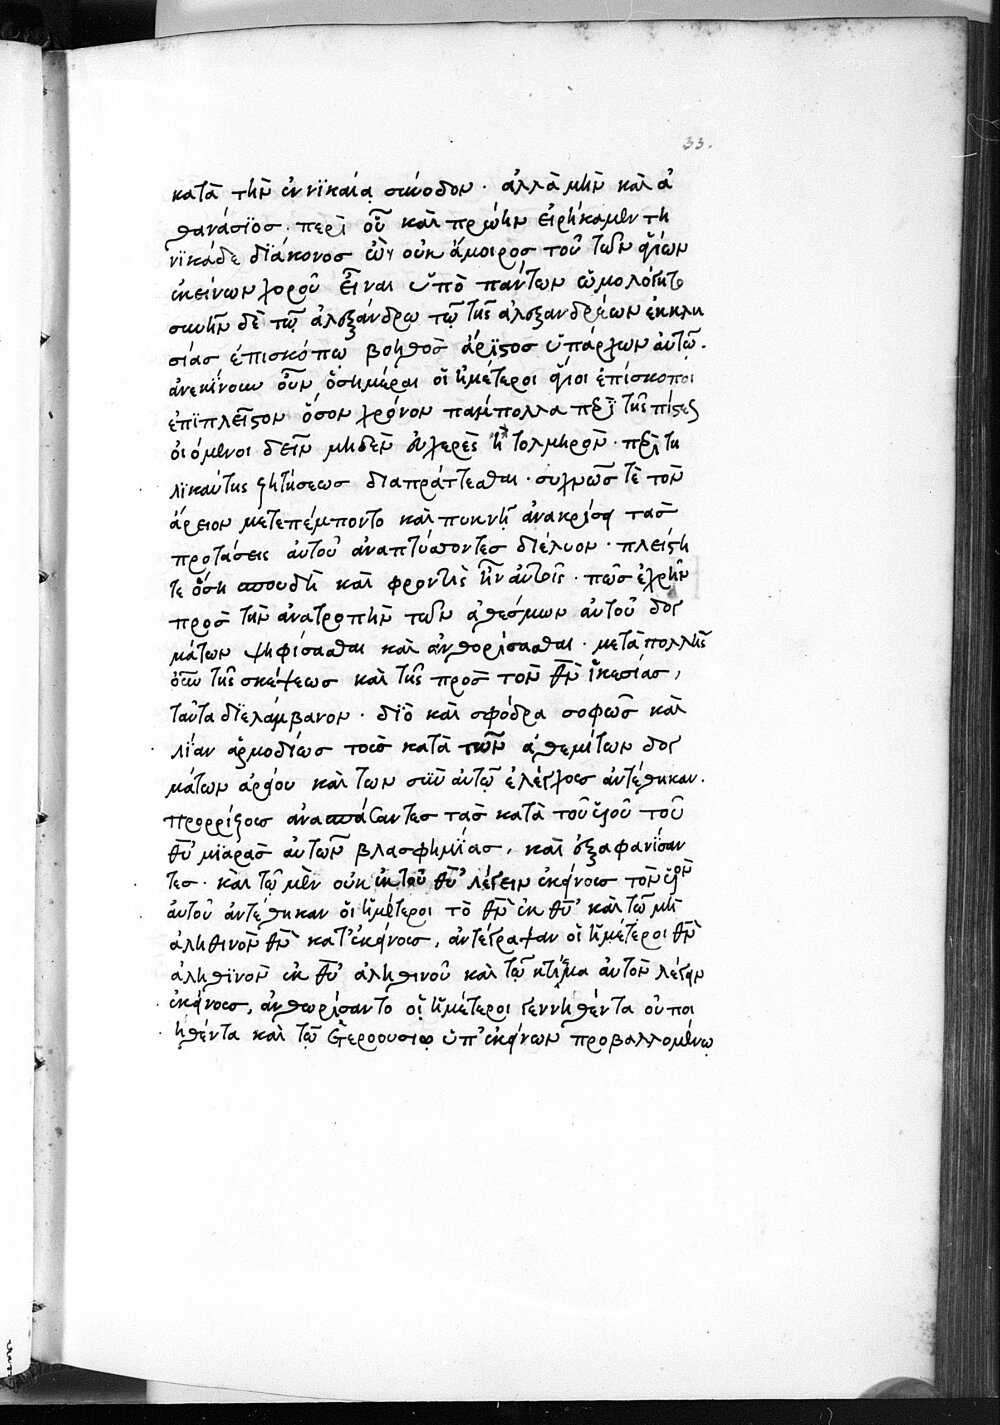 33.
κατὰ τὴν ἐν νϊκαίᾳ σύνοδον · ἀλλὰ μὴν καὶ ἀ
θανάσϊος · περὶ οὗ καὶ πρώην εἰρήκαμεν τη
νϊκάδε δϊάκονος ὢν οὐκ ἄμοιρος τοῦ τῶν ἁγίων
ἐκείνων χοροῦ εἶναι ὑπὸ πάντων ὡμολόγητο
συνῆν δὲ τῷ ἀλεξάνδρω τῷ τῆς ἀλεξανδρέων ἐκκλη
σίας ἐπισκόπῳ βοηθὸς ἄρϊστος ὑπάρχων αὐτῷ.
ἀνεκίνουν οὖν ὅσημέραι οἱ ἡμέτεροι ἅγιοι ἐπίσκοποι
ἐπϊπλεῖστον ὅσον χρόνον παμπολλα περὶ τῆς πίστεως
οἰόμενοι δεῖν μηδὲν εὐχερὲς ἢ τολμηρὸν · περὶ τη
λϊκαύτης ζητήσεως διαπράττεσθαι · συχνῶς τὲ τὸν
ἄρειον μετεπέμποντο καὶ πυκνῇ ἀνακρίσει τὰς
προτάσεις αὐτοῦ ἀναπτύσσοντες διέλυον · πλείστη
τε ὅση σπουδὴ καὶ φροντὶς ἦν αὐτοῖς · πῶς ἐχρῆν
πρὸς τὴν ἀνατροπὴν τῶν ἀθέσμων αὐτοῦ δογ
μάτων ψηφίσασθαι καὶ ἀνθορίσασθαι · μετὰ πολλῆς
οὖν τῆς σκέψεως καὶ τῆς πρὸς τὸν θν ἱκεσίας,
ταῦτα δϊελάμβανον · δϊὸ καὶ σφόδρα σοφῶς καὶ
λίαν ἁρμοδίως τοῖς κατὰ τῶν ἀθεμίτων δογ
μάτων ἀρείου καὶ των σὺν αὐτῷ ἐλέγχοις ἀντέθηκαν.
προρρίζους ἀνασπάσαντες τὰς κατὰ τοῦ ὑιοῦ τοῦ
θυ μϊαρὰς αὐτῶν βλασφημίας, καὶ ἐξαφανίσαν
τες · καὶ τῷ μὲν οὐκ ἐκ τοῦ θυ λέγειν ἐκείνους τὸν ὑιὸν
αὐτοῦ ἀντέθηκαν οἱ ἡμέτεροι τὸ θν ἐκ θυ καὶ τῷ μὴ
ἀληθινὸν θν κατ' ἐκείνους, ἀντέγραψαν οἱ ἡμέτεροι θν
ἀληθϊνὸν ἐκ θυ ἀληθινοῦ καὶ τῷ κτίσμα αὐτὸν λέγειν
ἐκείνους, ἀνθωρίσαντο οἱ ἡμέτεροι γεννηθέντα οὐ ποι
ηθέντα καὶ τῷ ἑτεροουσιῳ ὑπ' ἐκείνων προβαλλομένῳ